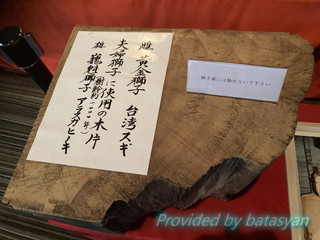 雌 黄金獅子 台湾スギ
夫婦獅子に使用の木片
雄 龍剣獅子 アラスカヒノキ
獅子頭には触れないで下さい
Provided by batasyan